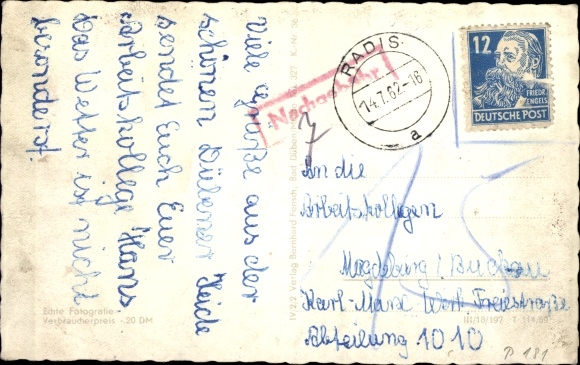 Viele Grüße aus der
schönen Dübener Heide
sendet Euch Euer
Arbeitskollege Hans
Das Wetter ist nicht
besonders!
Echte Fotografie
Verbraucherpreis -.20 DM
IV/2/2 Verlag Bernhard Fensch, Bad Düben
RADIS
14.7.62-16
a
Nachgebühr
12
FRIEDR.
ENGELS
DEUTSCHE POST
An die
Arbeitskollegen
Magdeburg / Buckau
Karl-Marx Werk Freiestraße
Abteilung 1010
III/18/197
P 181